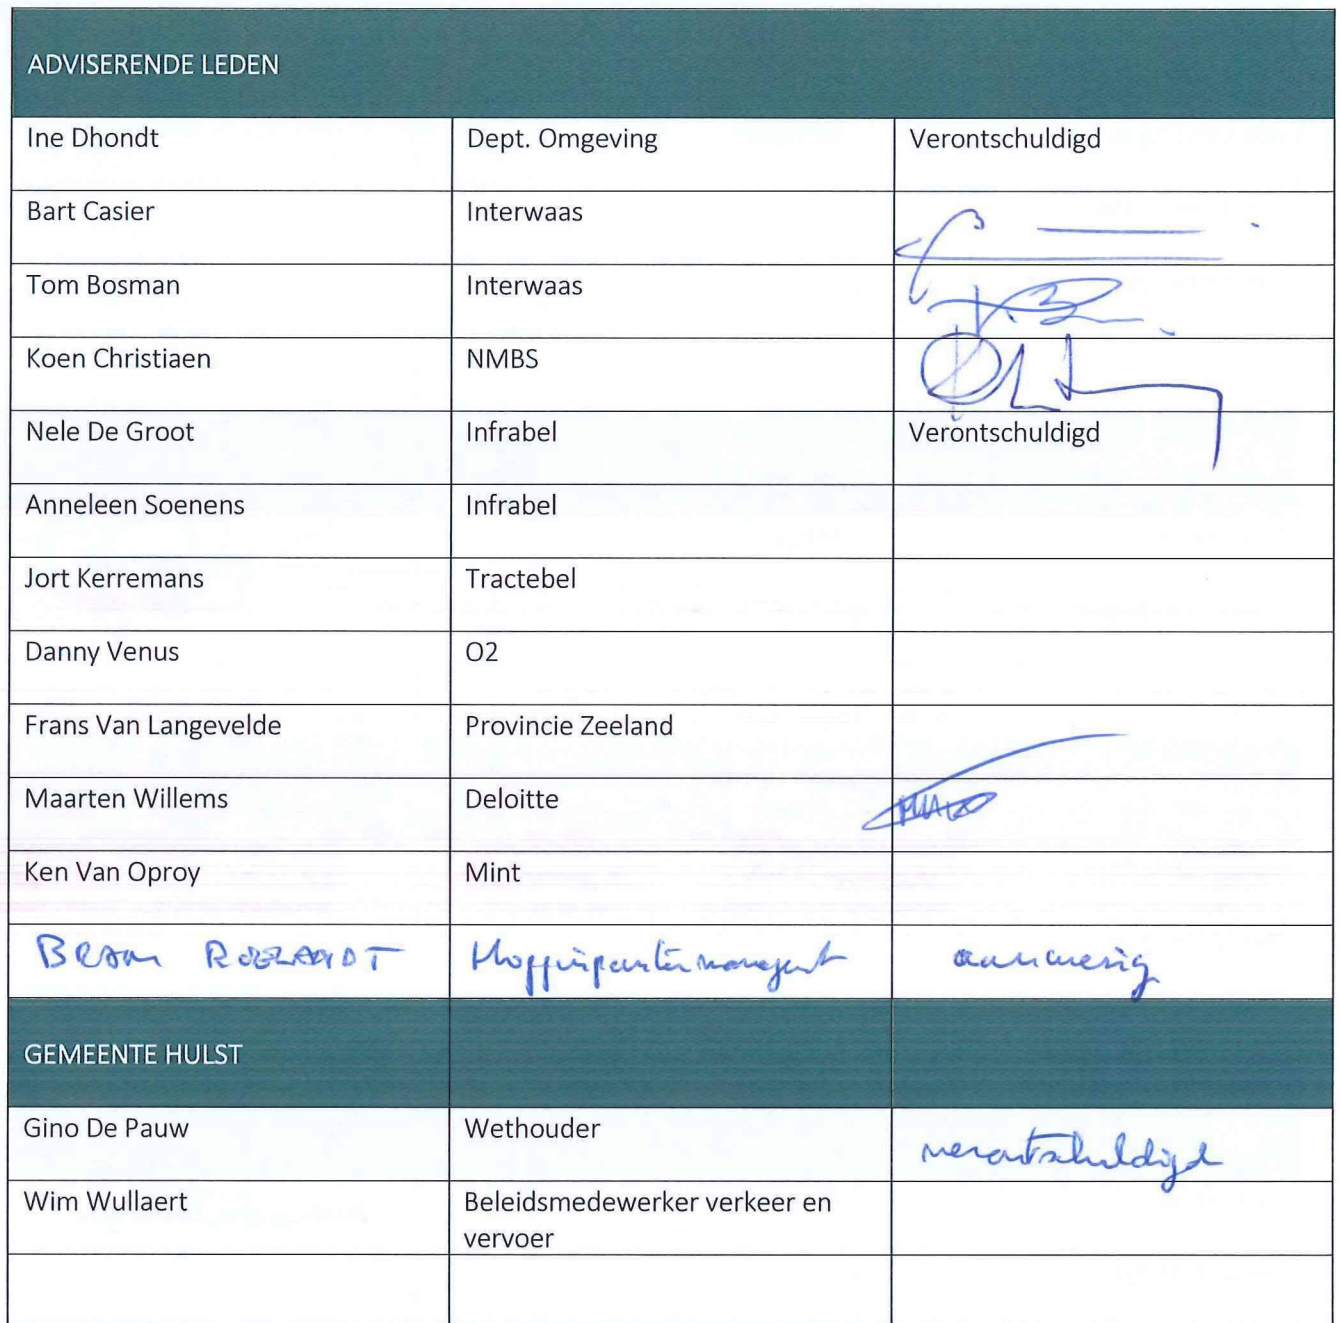 ADVISERENDE LEDEN
Ine Dhondt Dept. Omgeving Verontschuldigd
Bart Casier Interwaas
Tom Bosman Interwaas
Koen Christiaen NMBS
Nele De Groot Infrabel Verontschuldigd
Anneleen Soenens Infrabel
Jort Kerremans Tractebel
Danny Venus O2
Frans Van Langevelde Provincie Zeeland
Maarten Willems Deloitte
Ken Van Oproy Mint
BRAM ROELANDT aanwezig
GEMEENTE HULST
Gino De Pauw Wethouder verontschuldigd
Wim Wullaert Beleidsmedewerker verkeer en
vervoer